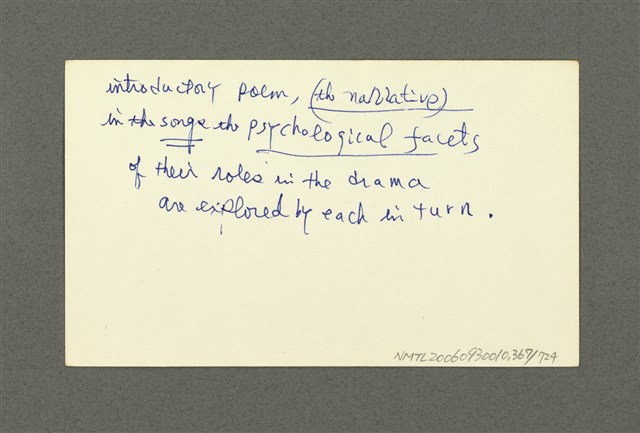 introductory poem, (the narrative)
in the songs the psychological facets
of their roles in the drama
are explored by each in turn.
NMTL20060930010,367/724